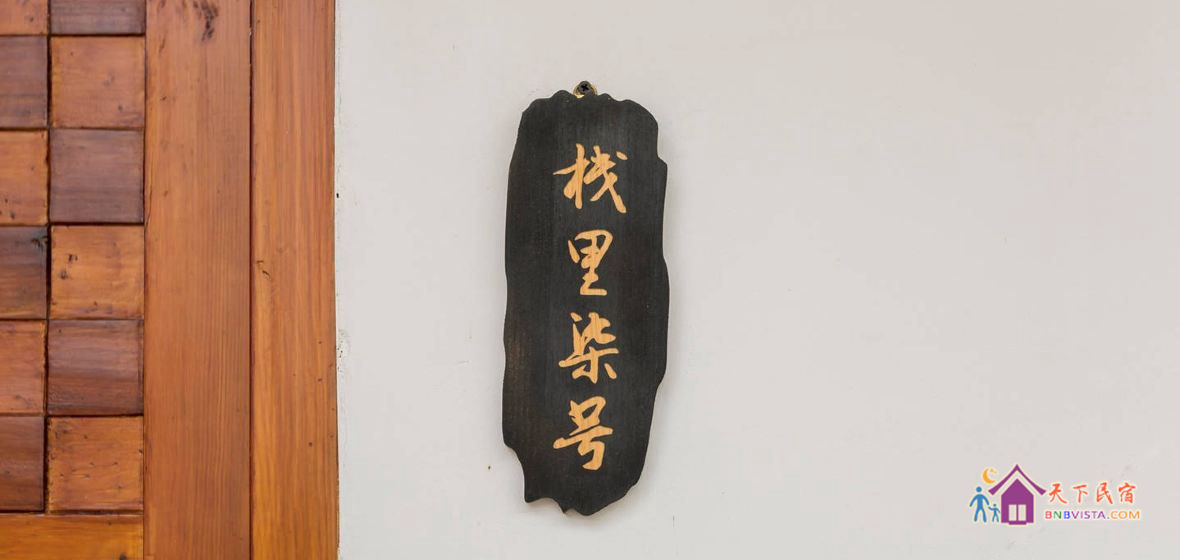 栈里柒号
天下民宿
BNBVISTA.COM